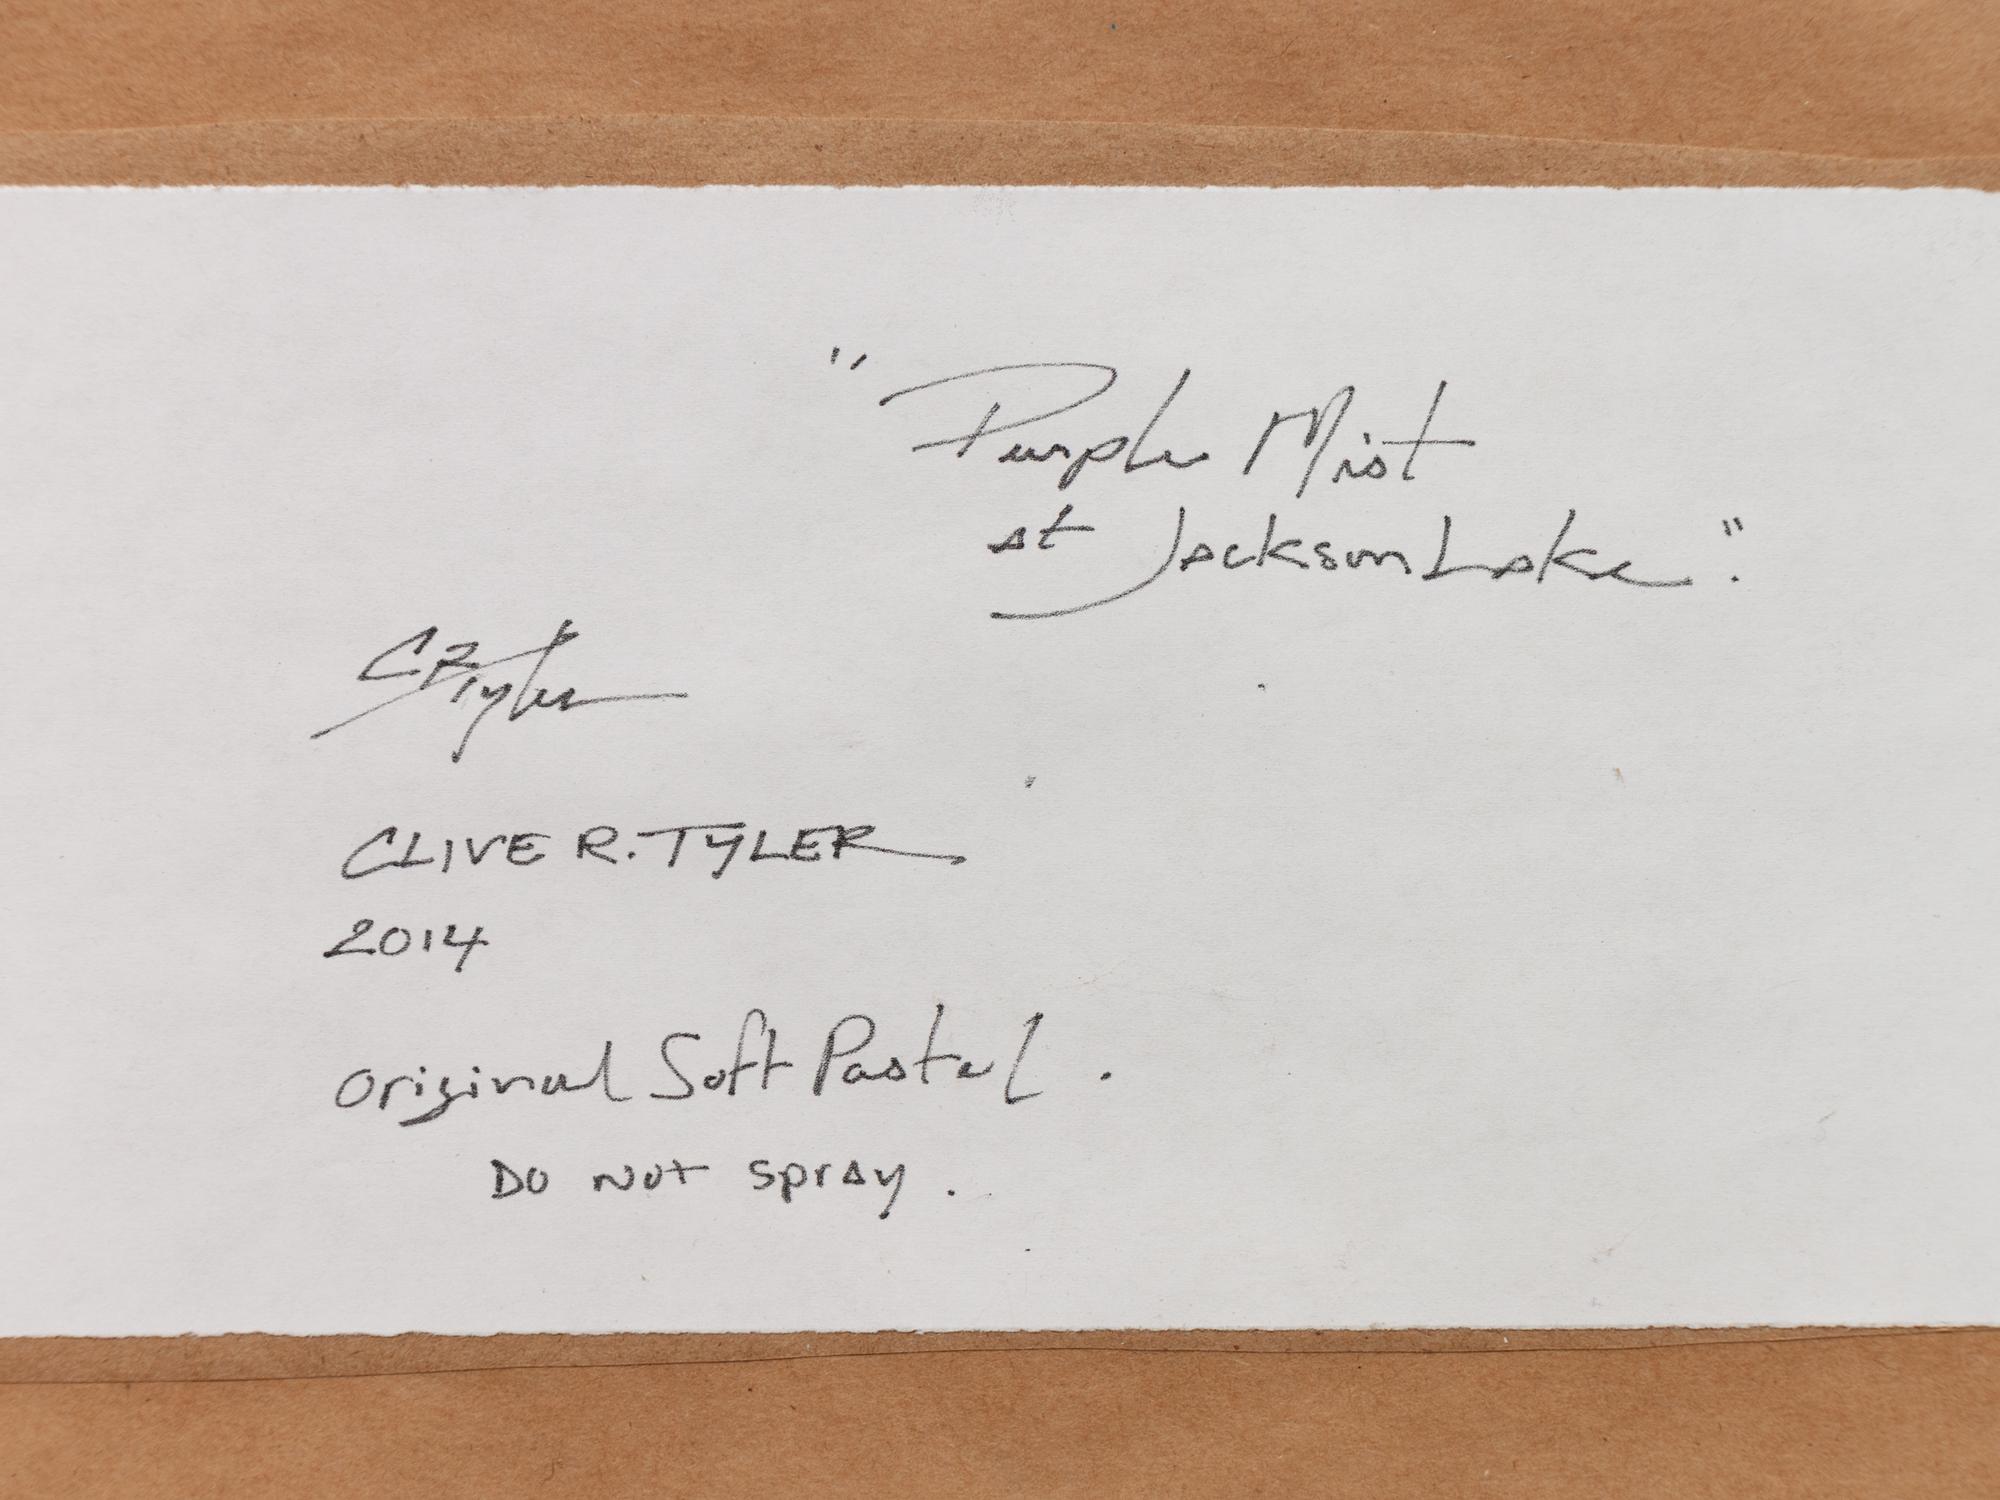 "Purple Mist
at Jackson Lake".
CRTyler
CLIVE R. TYLER
2014
Original Soft Pastel.
DO NOT spray.